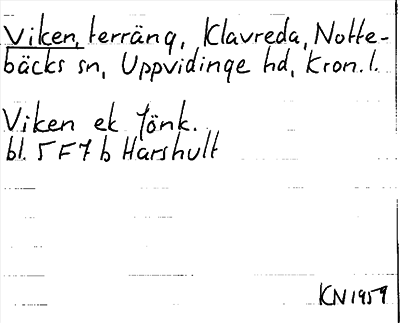 Viken, terräng, Klavreda, Notte-
bäcks sn, Uppvidinge hd, Kron. l.
Viken ek Jönk.
bl. 5 F 7 b Harshult
KN 1959